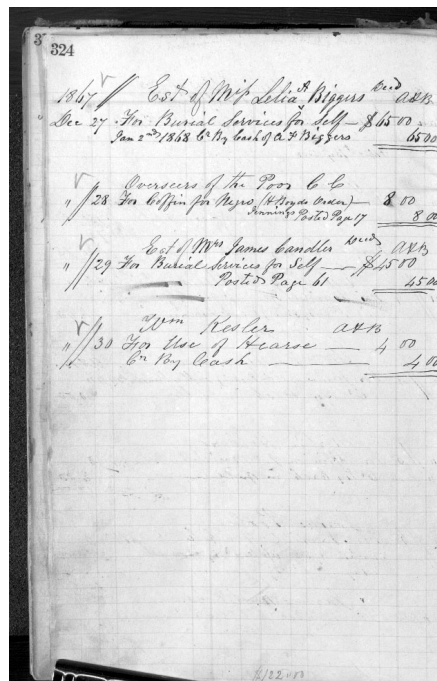 3
324
1867 Est of Miss Lelia A Biggers Decd A&B
Dec 27 For Burial Services for Self — $65 00
Jan 2nd 1868 Cr By Cash of A F Biggers 65 00
Overseers of the Poor C C
" 28 For Coffin for Negro (A Boyds Order) — 8 00
Jennings Posted Page 17 8 00
Est of Mrs James Candler Decd A&B
" 29 For Burial Services for Self — $45 00
Posted Page 61 45 00
Wm Kesler A&B
" 30 For Use of Hearse — 4 00
Cr By Cash — 4 00